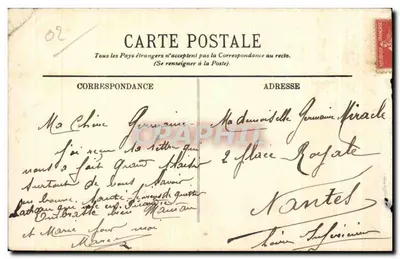 02
CARTE POSTALE
Tous les Pays étrangers n'acceptent pas la Correspondance au recto.
(Se renseigner à la Poste).
CORRESPONDANCE
ADRESSE
Ma Chère Germaine
J'ai reçu ta lettre qui
nous a fait grand plaisir
surtout de vous savoir
en bonne santé
Embrasse bien Maman
et Marie pour moi
Mademoiselle Germaine Miracle
2 place Royale
Nantes
Loire Inférieure